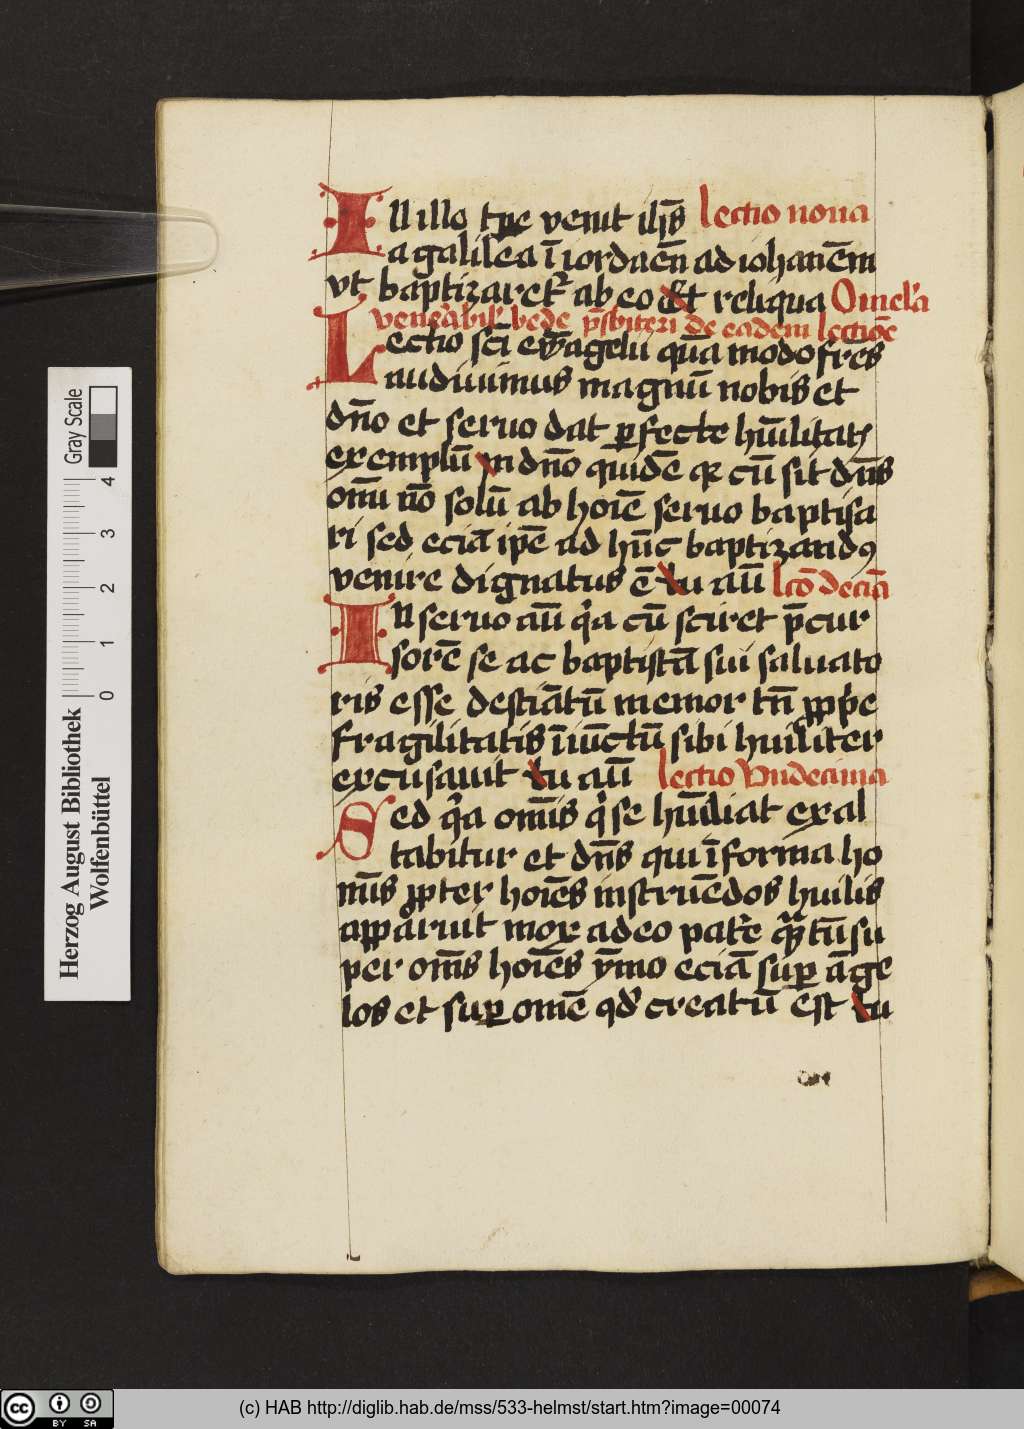 In illo tp̄e venit ih̄s lectio nona
a galilea ī iordaēn ad iohanēm
vt baptizaret᷑ ab eo Et reliqua Omel'a
venerab̄il' bede p̄sbiteri de eadem lectiōe
Lectio scī ew̄agelii quā modo fr̄es
audiuimus magnū nobis et
dn̄o et seruo dat ꝑfecte hūilitatꝭ
exemplū In dn̄o quidē qꝛ cū sit dn̄s
om̄u nō solū ab hoīe seruo baptisa
ri sed eciā ip̄e ad hūc baptizandꝯ
venire dignatus ē tu aū lcō deciā
In seruo aū qͥa cū sciret p̄cur
sorē se ac baptistā sui saluato
ris esse destiātū memor tn̄ ꝓpͥe
fragilitatis īiūctū sibi huīliter
excusauit tu aū lectio vndecima
Sed qͥa omīs qͥ se hūiliat exal
tabitur et dn̄s qui ī forma ho
mīs ꝓpter hoīes instruēdos huīlis
apparuit mox a deo patre qͣꝫtū su
per om̄s hoīes ymo eciā suꝑ āge
los et suꝑ omē qd̄ creatū est tu
Herzog August Bibliothek
Wolfenbüttel
Gray Scale
0 1 2 3 4
cc BY SA
(c) HAB http://diglib.hab.de/mss/533-helmst/start.htm?image=00074